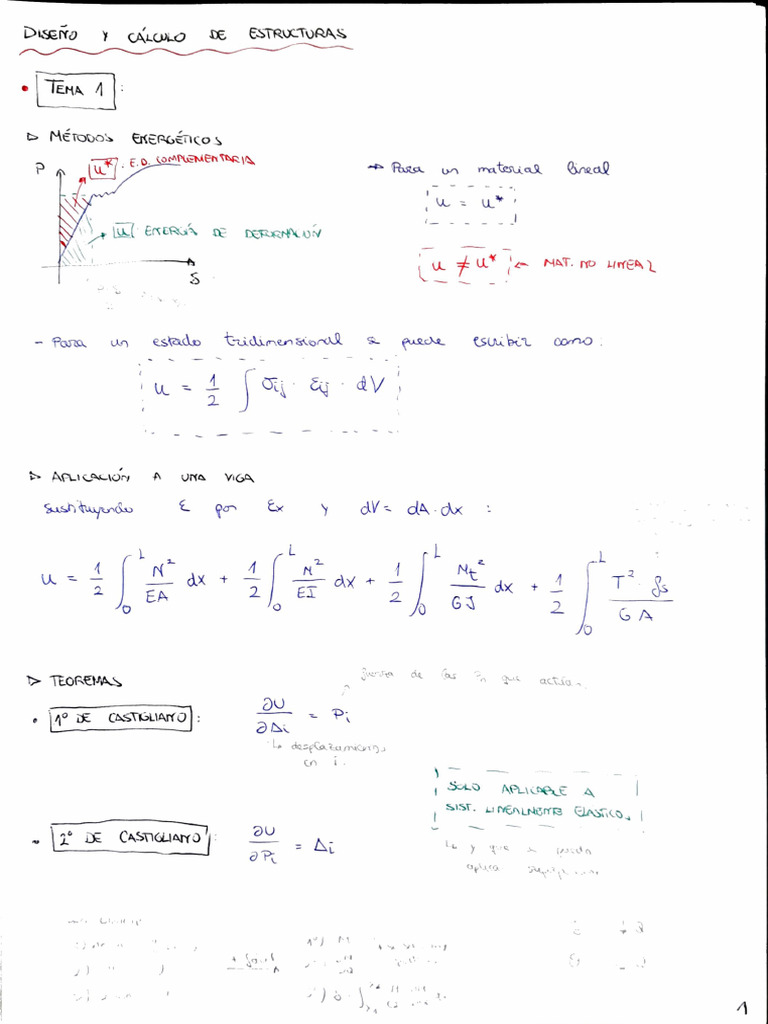 DISEÑO Y CÁLCULO DE ESTRUCTURAS
• TEMA 1 :
▷ MÉTODOS ENERGÉTICOS
P
U* . E.D. COMPLEMENTARIA
U ENERGÍA DE DEFORMACIÓN
S
→ Para un material lineal
U = U*
U ≠ U* ← MAT. NO LINEAL
- Para un estado tridimensional se puede escribir como:
U = 1/2 ∫ σij · εij · dV
▷ APLICACIÓN A UNA VIGA
sustituyendo ε por εx y dV = dA·dx :
U = 1/2 ∫₀ᴸ N²/EA dx + 1/2 ∫₀ᴸ M²/EI dx + 1/2 ∫₀ᴸ Mt²/GJ dx + 1/2 ∫₀ᴸ T²·fs/GA
▷ TEOREMAS
fuerza de las Pn que actúan
• 1º DE CASTIGLIANO : ∂U/∂Δi = Pi
↳ desplazamiento
en i.
SOLO APLICABLE A
SIST. LINEALMENTE ELASTICO.
• 2º DE CASTIGLIANO : ∂U/∂Pi = Δi
↳ y que se pueda
aplicar
1